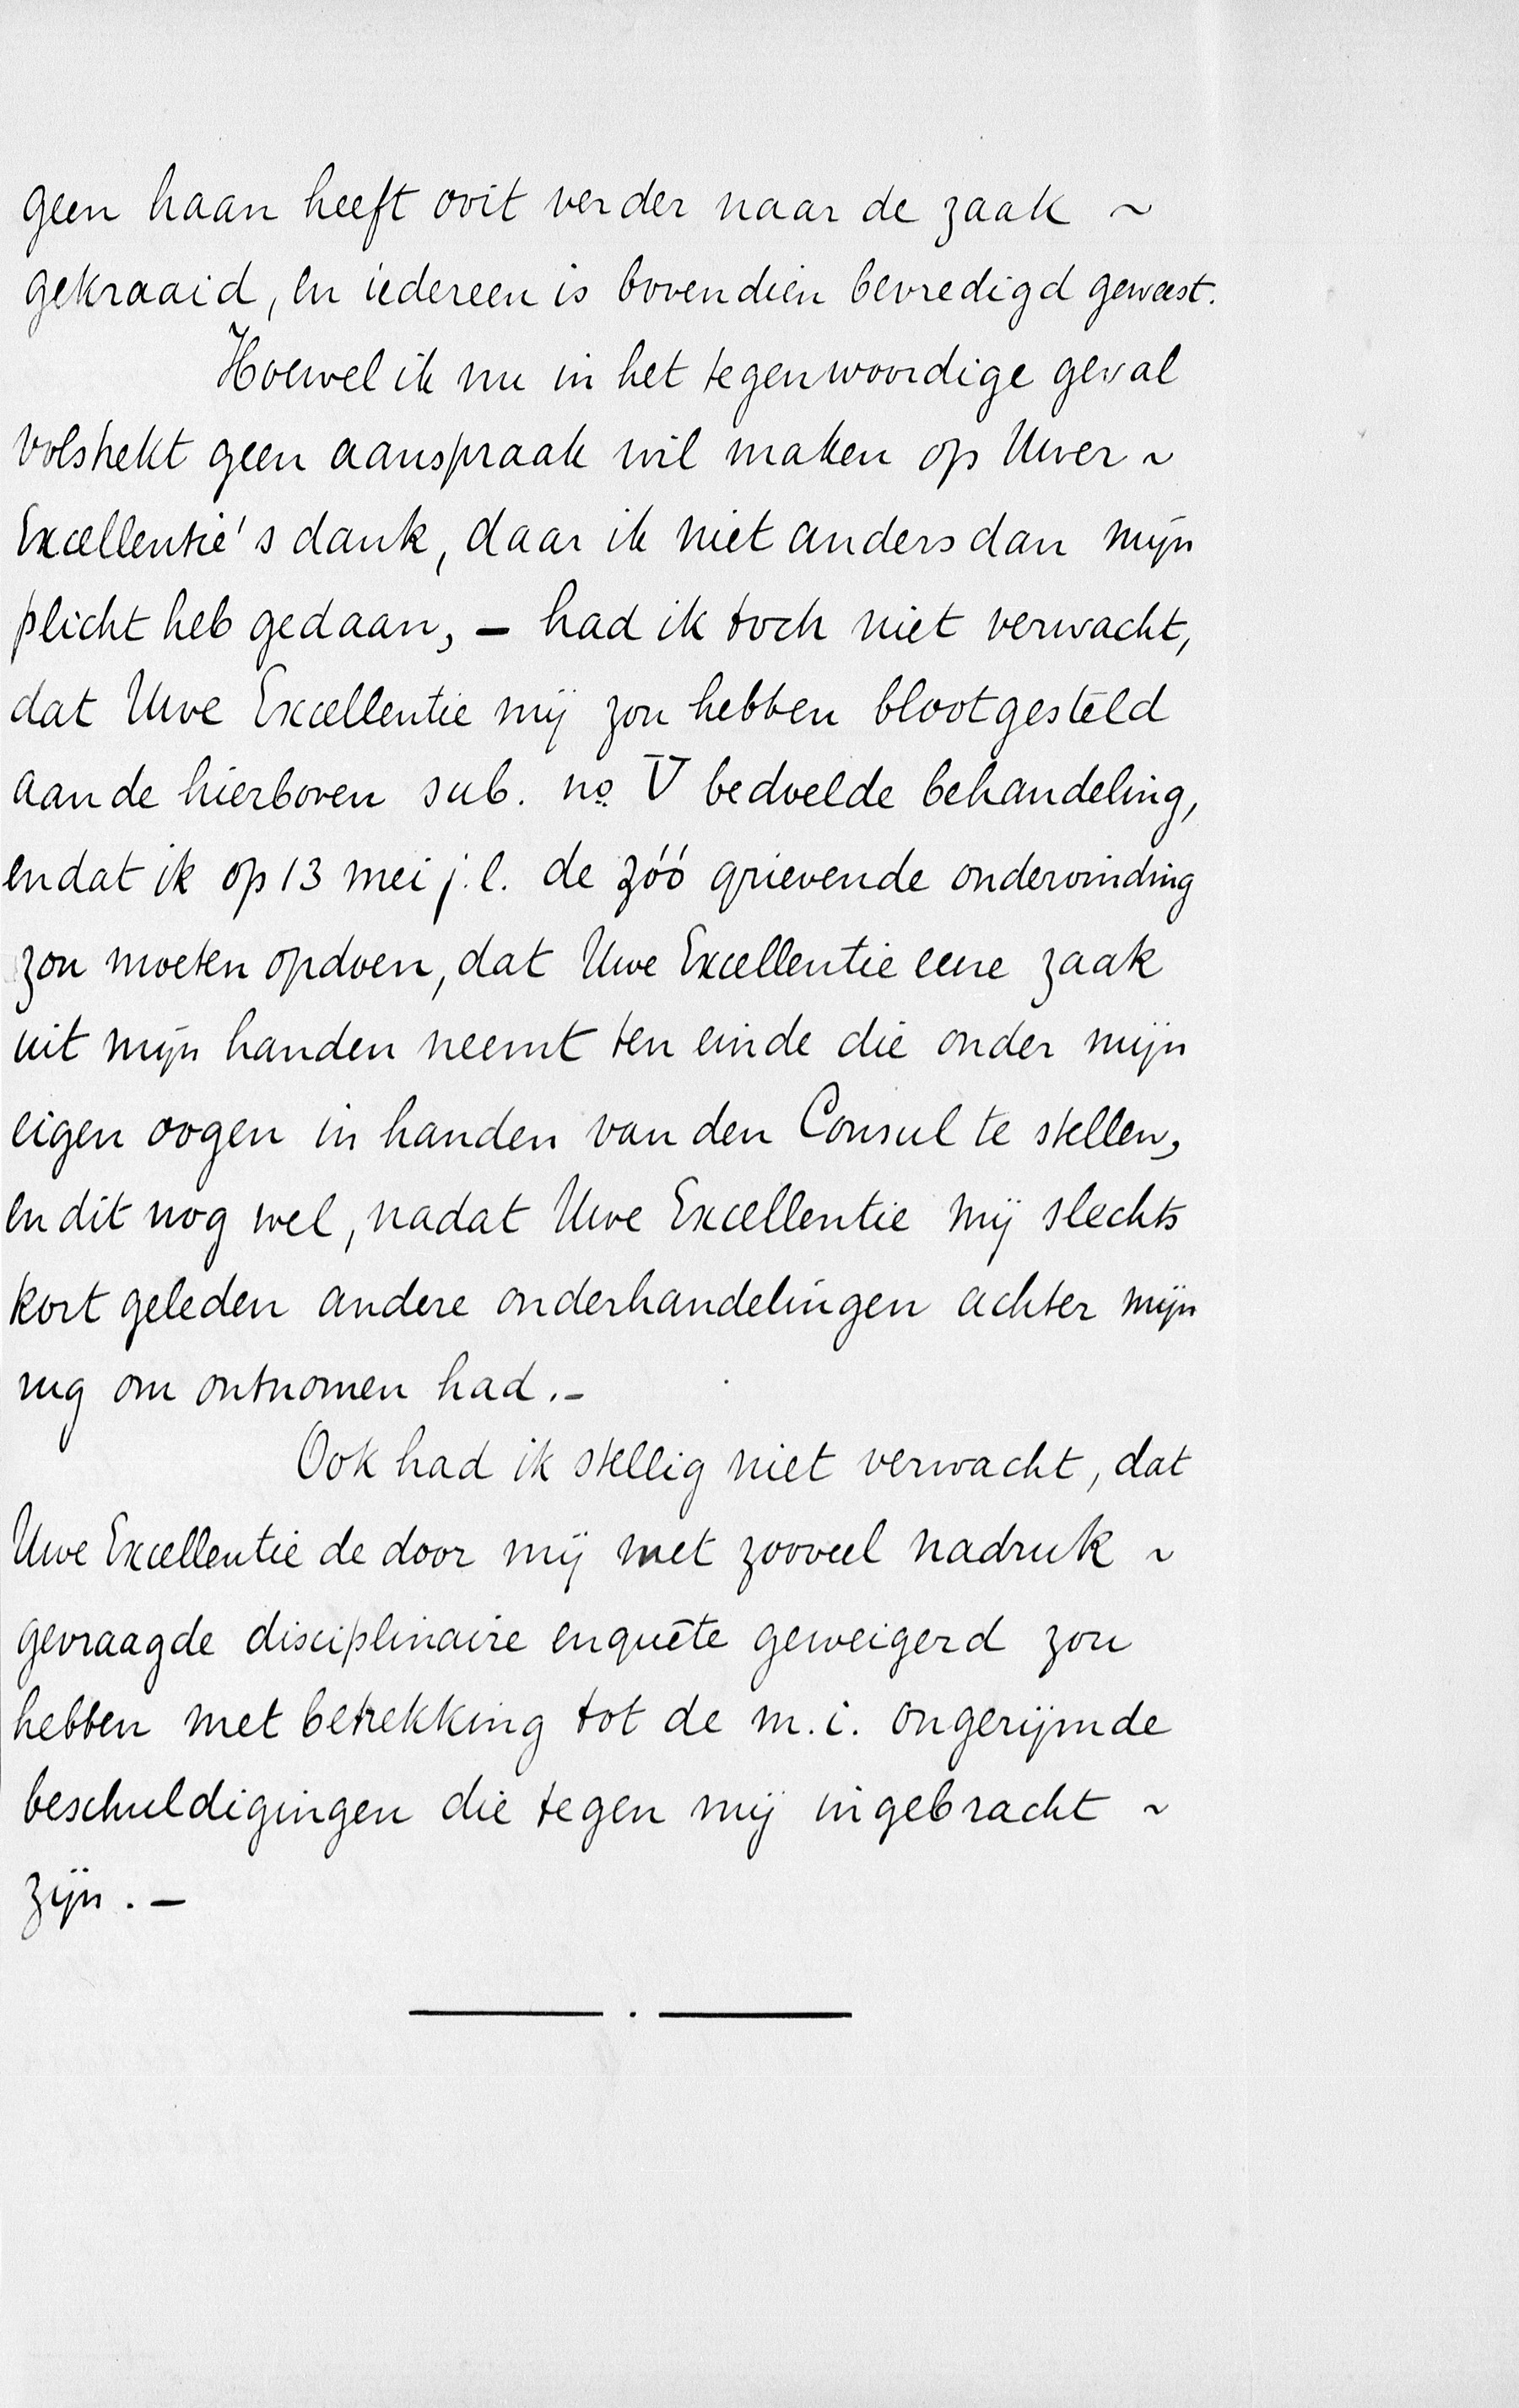 geen haan heeft ooit verder naar de zaak ~
gekraaid, en iedereen is bovendien bevredigd geweest.
Hoewel ik nu in het tegenwoordige geval
volstrekt geen aanspraak wil maken op Uwer ~
Excellentie's dank, daar ik niet anders dan mijn
plicht heb gedaan, – had ik toch niet verwacht,
dat Uwe Excellentie mij zou hebben blootgesteld
aan de hierboven sub. no. V bedoelde behandeling,
en dat ik op 13 mei j.l. de zóó grievende ondervinding
zou moeten opdoen, dat Uwe Excellentie eene zaak
uit mijn handen neemt ten einde die onder mijn
eigen oogen in handen van den Consul te stellen,
en dit nog wel, nadat Uwe Excellentie mij slechts
kort geleden andere onderhandelingen achter mijn
rug om ontnomen had. –
Ook had ik stellig niet verwacht, dat
Uwe Excellentie de door mij met zooveel nadruk ~
gevraagde disciplinaire enquête geweigerd zou
hebben met betrekking tot de m.i. ongerijmde
beschuldigingen die tegen mij ingebracht ~
zijn. –